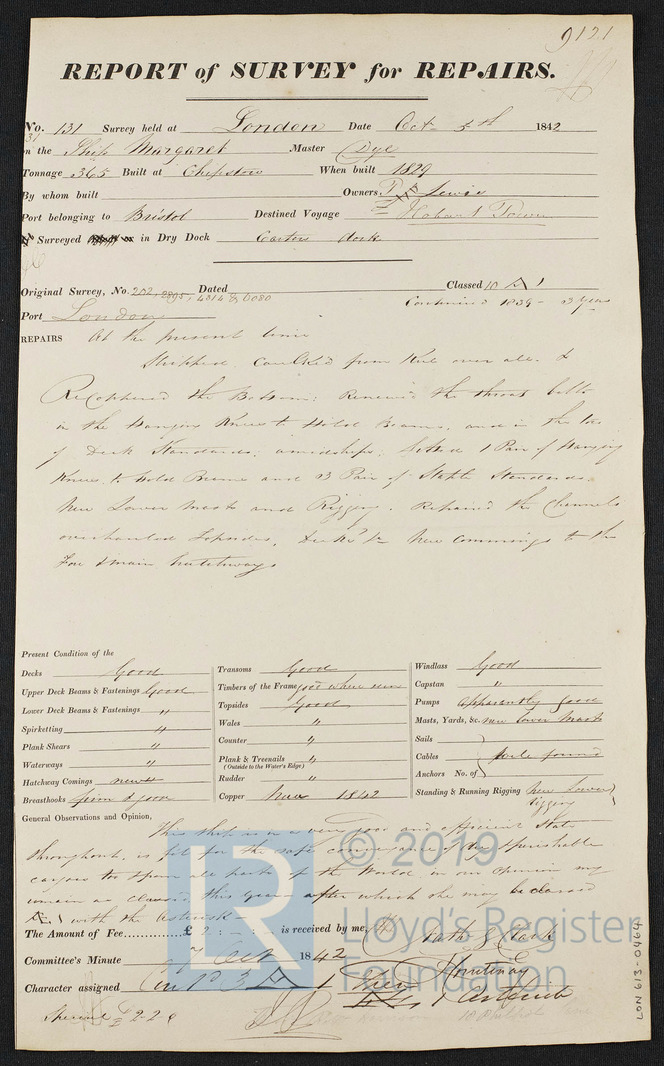 9121
REPORT of SURVEY for REPAIRS.
No. 131 Survey held at London Date Oct 5th 1842
on the Ship Margaret Master Dye
Tonnage 365 Built at Chepstow When built 1829
By whom built Owners Lewis
Port belonging to Bristol Destined Voyage Hobart Town
Surveyed in Dry Dock Carters dock
Original Survey, No. 202, 2895, 4314 & 6080 Dated Classed 10 A 1
Continued 1839 - 3 Years
Port London
REPAIRS At the present time
Stripped Caulked from Keel over all. &
ReCoppered the Bottom; Renewed the throat bolts
in the Hanging Knees to Hold Beams, and in the toe
of Deck Standards, amidships, 1 Pair of Hanging
Knees to Hold Beams and 3 Pair of Staple Standards.
New Lower Mast and Rigging. Repaired the Channels
overhauled Topsides, Decks &c New Commings to the
Fore & main hatchways
Present Condition of the
Decks Good
Upper Deck Beams & Fastenings Good
Lower Deck Beams & Fastenings "
Spirketting "
Plank Shears "
Waterways "
Hatchway Comings new
Breasthooks firm & good
Transoms Good
Timbers of the Frame good where seen
Topsides Good
Wales "
Counter "
Plank & Treenails "
(Outside to the Water's Edge)
Rudder "
Copper New 1842
Windlass Good
Capstan "
Pumps apparently good
Masts, Yards, &c. new Lower Masts
Sails
Cables well found
Anchors No. of
Standing & Running Rigging New Lower
rigging
General Observations and Opinion,
This ship is in a very good and efficient State
throughout, is fit for the safe conveyance of dry & perishable
cargoes to & from all parts of the World in our opinion may
remain as classed this year after which she may be classed
Æ 1 with the asterisk
The Amount of Fee............£ 2 : - : - is received by me,
Committee's Minute 7 Oct 1842
Character assigned 3 A 1
Special 2-2-0
© 2019
Lloyd's Register
Foundation
LR
LON 613-0464